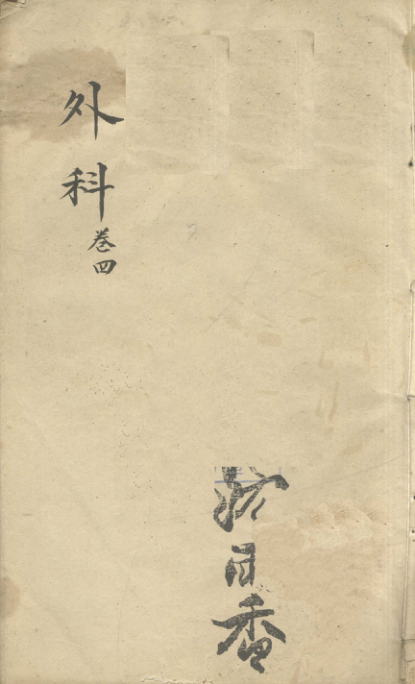 外科
卷四
月香